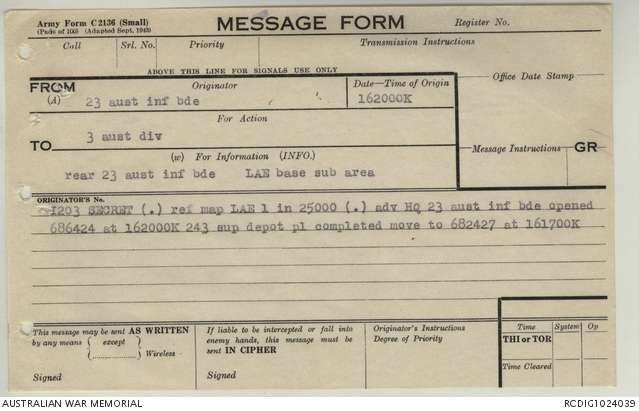 Army Form C2136 (Small)
(Pads of 100) (Adapted Sept. 1943)
MESSAGE FORM
Register No.
Call Srl. No. Priority Transmission Instructions
ABOVE THIS LINE FOR SIGNALS USE ONLY
Office Date Stamp
FROM Originator Date—Time of Origin
(A) 23 aust inf bde 162000K
For Action
TO 3 aust div
Message Instructions GR
(w) For Information (INFO.)
rear 23 aust inf bde LAE base sub area
ORIGINATOR'S No.
I203 SECRET (.) ref map LAE 1 in 25000 (.) adv HQ 23 aust inf bde opened
686424 at 162000K 243 sup depot pl completed move to 682427 at 161700K
This message may be sent AS WRITTEN
by any means ( except )
(.......... ) Wireless -
Signed
If liable to be intercepted or fall into
enemy hands, this message must be
sent IN CIPHER
Signed
Originator's Instructions
Degree of Priority
Time System Op
THI or TOR
Time Cleared
AUSTRALIAN WAR MEMORIAL RCDIG1024039